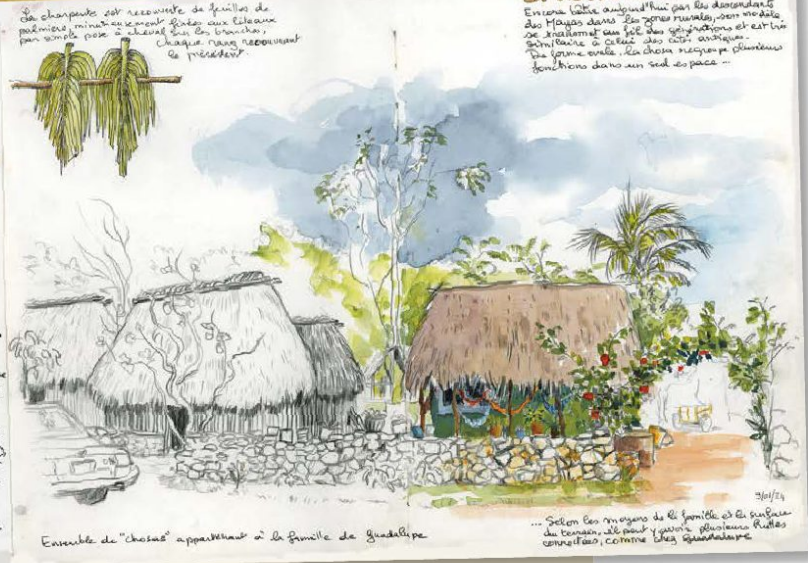 La charpente est recouverte de feuilles de
palmiers, minutieusement fixées aux liteaux
par simple pose à cheval sur les branches,
chaque rang recouvrant
le précédent.
Encore bâtie aujourd'hui par les descendants
des Mayas dans les zones rurales, son modèle
se transmet au fil des générations et est très
similaire à celui des cités antiques.
De forme ovale, la choza regroupe plusieurs
fonctions dans un seul espace ...
9/01/24
Ensemble de "chozas" appartenant à la famille de Guadalupe
... Selon les moyens de la famille et la surface
du terrain, il peut y avoir plusieurs huttes
connectées, comme chez Guadalupe